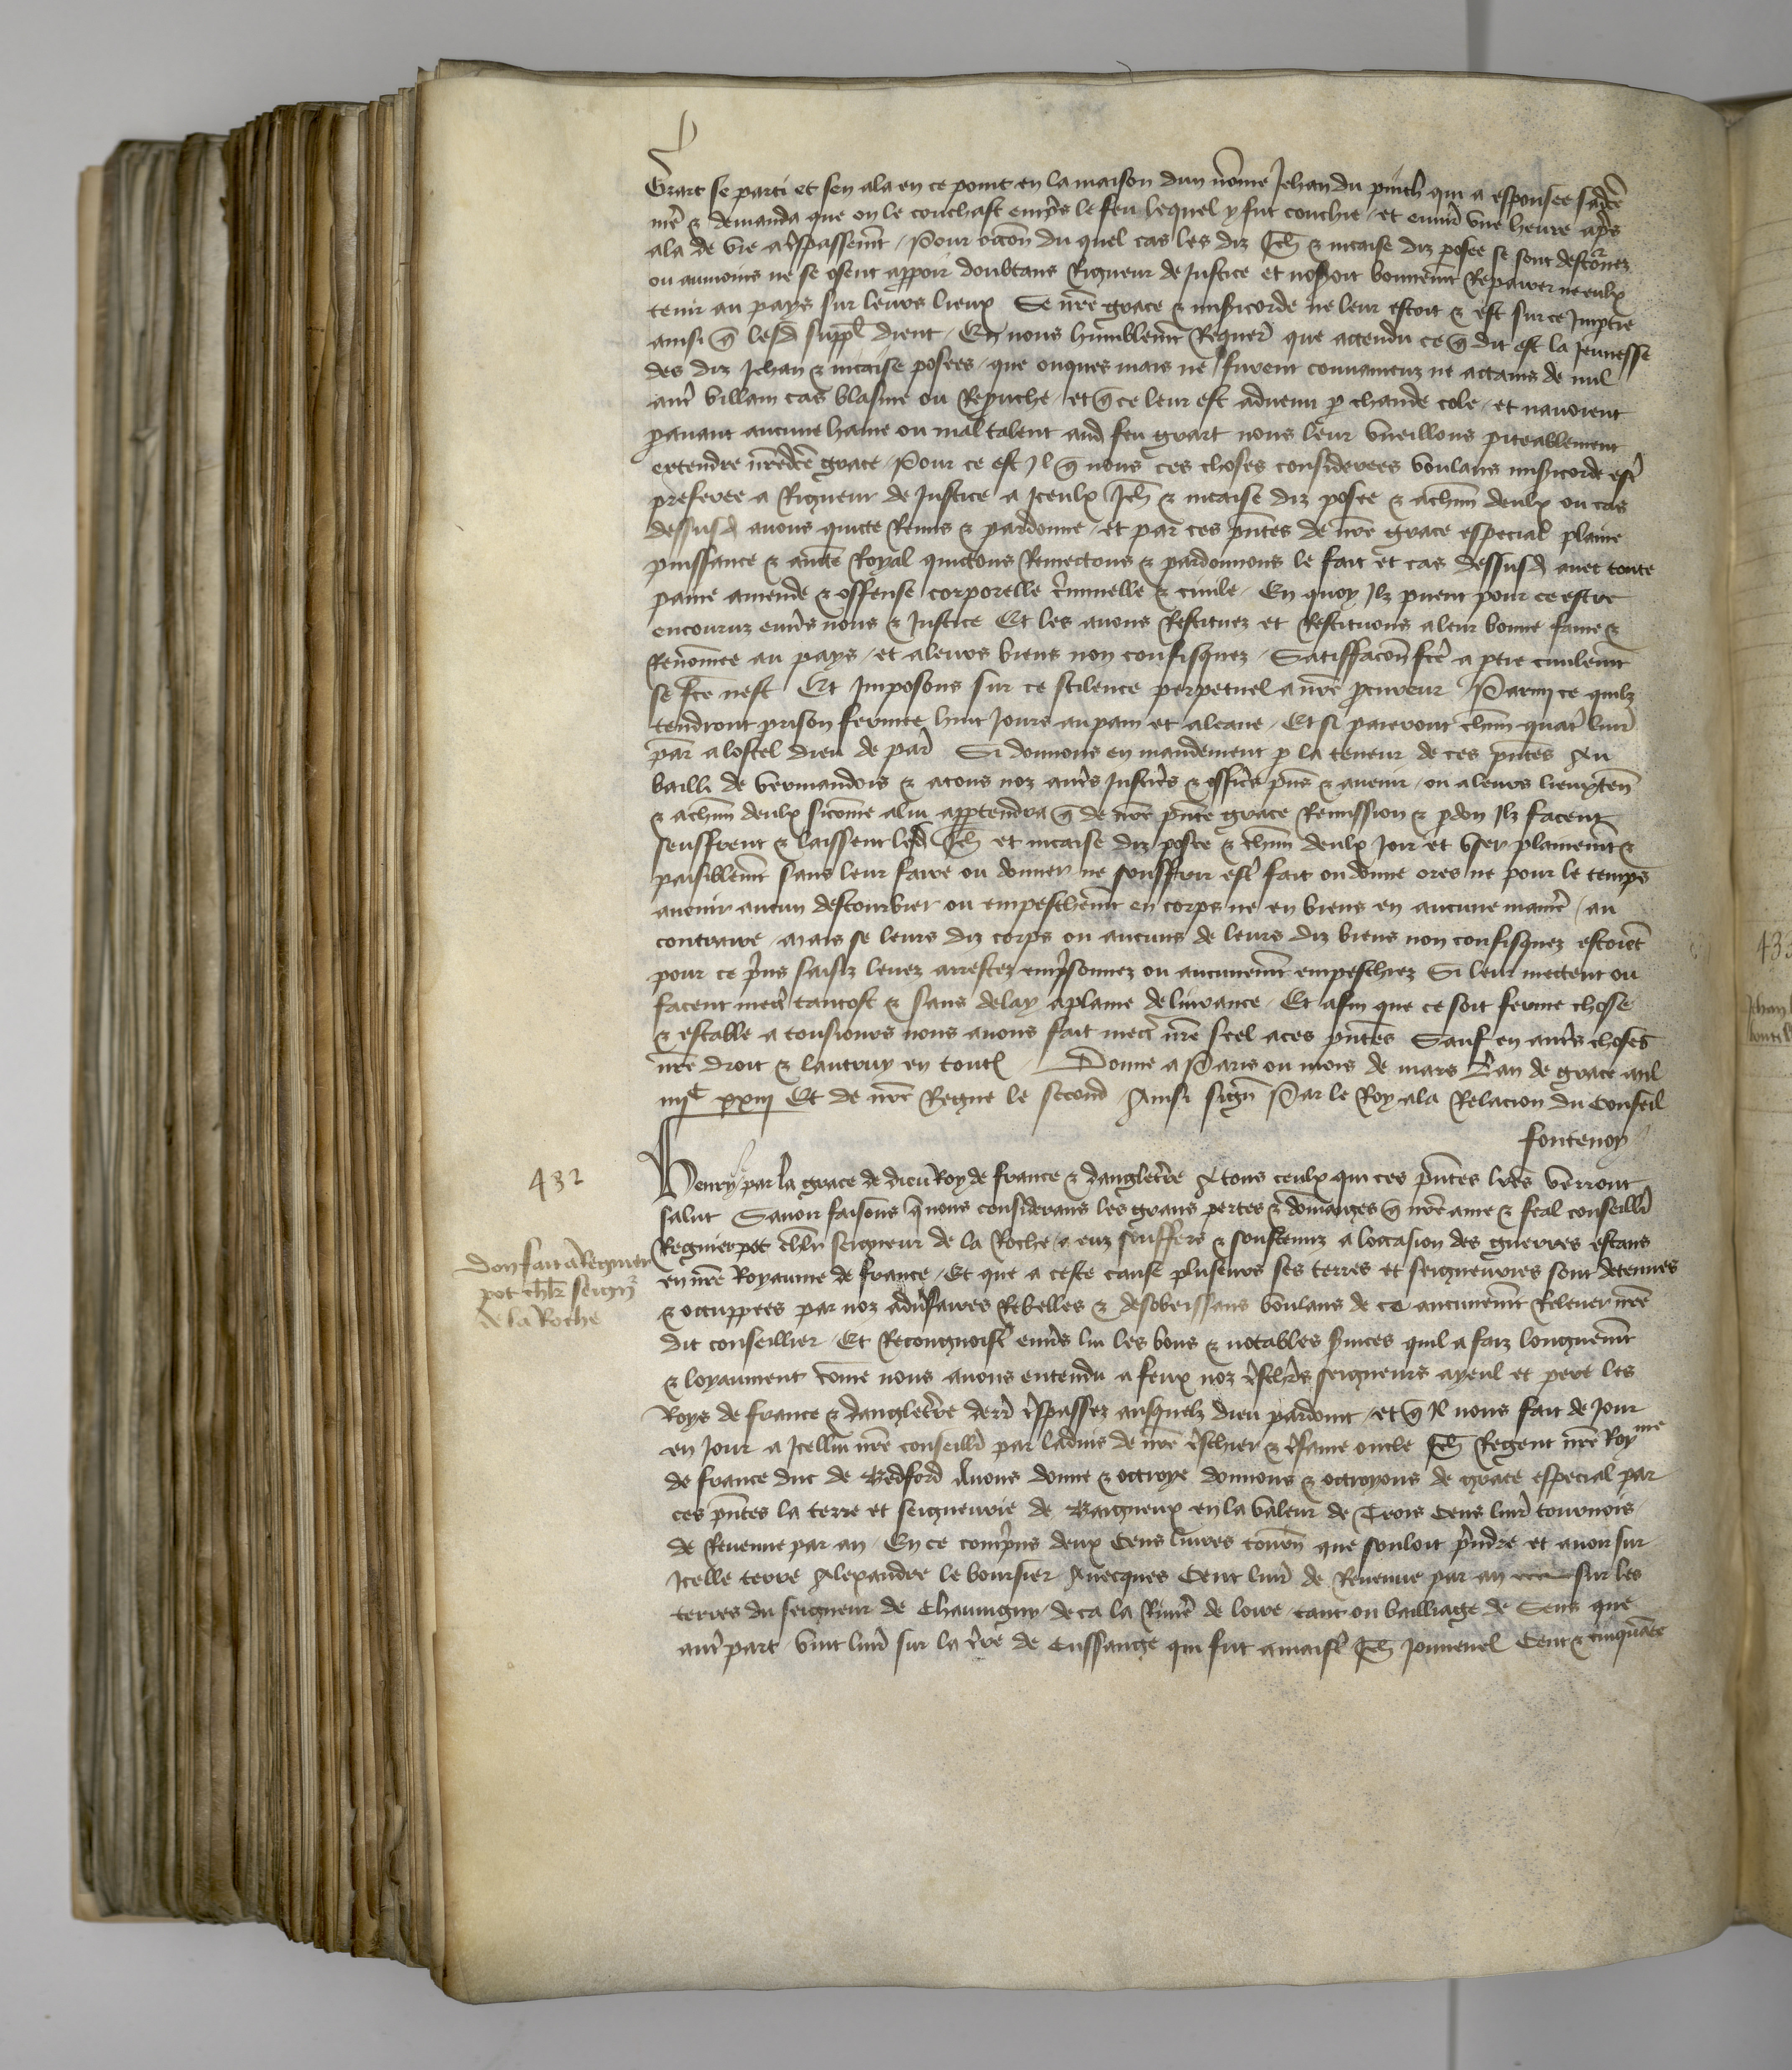 Grart se parti et sen ala en ce point en la maison dun nōme Jehan du puich qui a espousee sad
mē & demanda que on le couchast empēs le feu lequel y fut couchie / et enuir̄ vne heure apēs
ala de vie a tr̄spassemēt / Pour occōn du quel cas les diz Jeh̄ & nicaise diz posee se sont destor̄nez
ou aumoins ne se osent appoir doubtans Rigueur de Justice et noseroit bonnemēt Repairer ne eulx
tenir au pays sur leurs lieux Se nr̄e grace & misicorde ne leur estoit & est sur ce Impt̄ie
ainsi q̄ lesd suppl̄ dient / En nous humblemēt Requer̄ que attendu ce q̄ dit est la Jeunesse
des diz Jehan & nicaise posees / que onques mais ne furent conuaincuz ne attains de nul
aut̄ villain cas blasme ou Reprouche / et q̄ ce leur est aduenu p chaude cole / et nauoient
pauant aucune haine ou mal talent aud feu grart nous leur vueillons piteablement
extendre nr̄ēdcē grace / Pour ce est Jl q̄ nous ces choses considerees voulans misicorde est̄
preferee a Rigueur de Justice a Jceulx Jeh̄ & nicaise diz posee & achūn deulx ou cas
dessusd auons quicte Remis & pardonne / et par ces pn̄tes de nr̄e grace especial plaine
puissance & auctē Royal quictons Remectons & pardonnons le fait et cas dessusd auec toute
paine amende & offense corporelle cīminelle & ciuile / En quoy Jlz puent pour ce estre
encouruz enuēs nous & Justice Et les auons Restituez et Restituons a leur bonne fame &
Renōmee au pays / et a leurs biens non confisquez / Satisfaccōn fcē a ptie ciuilemēt
se fcē nest Et Imposons sur ce scilence perpetuel a nr̄e pcureur Parmi ce quilz
tendront prison fermee huit Jours au pain et aleaue / Et si paieront chūn quat̄ liur̄
par̄ a lostel dieu de par̄ Si donnons en mandement p la teneur de ces pn̄tes Au
bailli de vermandois & atous noz aut̄s Justicīs & officīs pn̄s & auenir / ou a leurs lieuxten̄
& achūn deulx sicōme alui appartendra q̄ de nr̄e pn̄te grace Remission & pdon Jlz facent
seuffrent & laissent lesd Jeh̄ et nicaise diz posee & chūn deulx Joir et vser plainemēt &
paisiblemēt sans leur faire ou donner ne souffrir est̄ fait ou donne ores ne pour le temps
auenir aucun destourbier ou empeschemēt en corps ne en biens en aucune manīe / au
contraire / mais se leurs diz corps ou aucuns de leurs diz biens non confisquez estoiēt
pour ce pīns saisiz leuez arrestez empīsonnez ou aucunemēt empeschiez Si leur mettent ou
facent mect̄ tantost & sans delay aplaine deliurance / Et afin que ce soit ferme chose
& estable a tousiours nous auons fait mect̄ nr̄e seel aces pn̄tes Sauf en aut̄s choses
nr̄e droit & lautruy en toutes Donne a Paris ou mois de mars Lan de grace mil
iiijᶜ xxiij Et de nr̄e Regne le second Ainsi sign̄ Par le Roy ala Relacion du Conseil
fontenoy
432
Henry par la grace de dieu Roy de france & dangletēre A tous ceulx qui ces pn̄tes lr̄es verront
salut Sauoir faisons q̄ nous considerans les grans pertes & dōmages q̄ nr̄e ame & feal conseillī
Regnier pot chlr̄ seigneur de la Roche / a euz souffers & soustenuz a loccasion des guerres estans
en nr̄e Royaume de france / Et que a ceste cause pluseurs ses terres et seigneuries sont detenues
& occuppees par noz aduīsaires Rebelles & desobeissans voulans de ce aucunemēt Releuer nr̄e
dit conseillier / Et Recongnoist̄ enuēs lui les bons & notables suices quil a faiz longuemēt
& loyaument cōme nous auons entendu a feux noz tr̄schr̄s seigneurs ayeul et pere les
Roys de france & dangletēre derr̄ tr̄spassez ausquelz dieu pardoint / et q̄ Jl nous fait de Jour
en Jour a Jcellui nr̄e conseillī par laduis de nr̄e tr̄schier & tr̄same oncle Jeh̄ Regent nr̄e Roymē
de france duc de Bedford Auons donne & octroye donnons & octroyons de grace especial par
ces pn̄tes la terre et seigneurie de Baigneux en la valeur de Trois Cens liur̄ tournois
de Reuenue par an / En ce compīns deux Cens liures tourn̄ que souloit pr̄ndre et auoir sur
Jcelle terre Alexandre le boursier Auecques Cent liur̄ de Reuenue par an sur les
terres du seigneur de Chauuigny / de ca la Riuīe de loire / tant ou bailliage de Sens que
aut̄ part / vint liur̄ sur la tr̄re de Cussange qui fut a maist̄ Jeh̄ Jouuenel Cent & cinquāte
don fait a Regnier
pot chlr̄ seign̄r
de la Roche